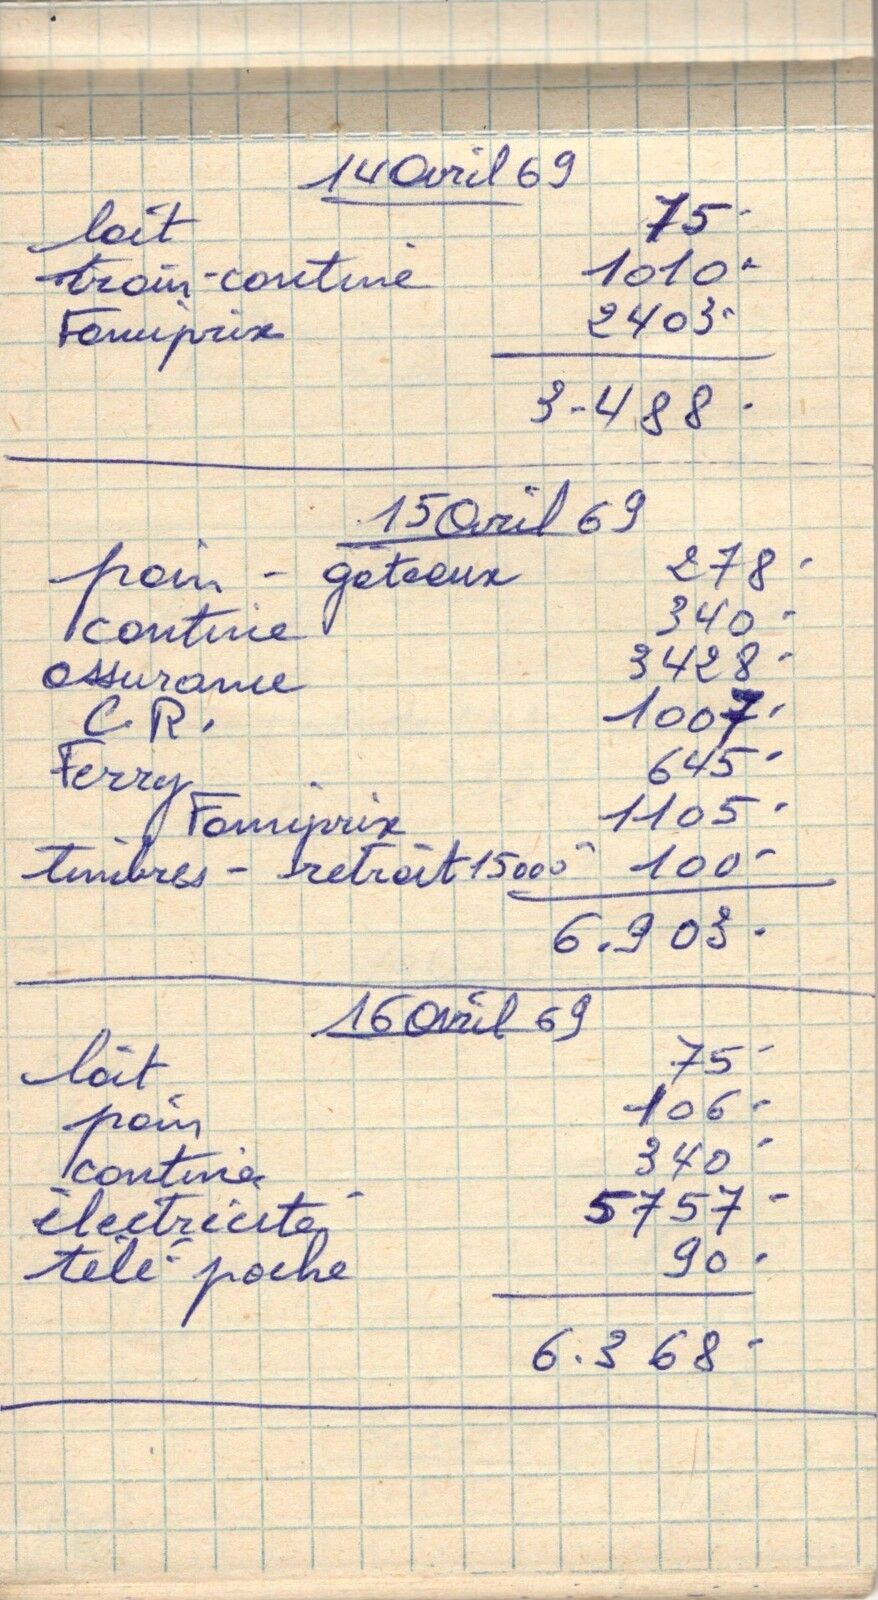 14 Avril 69
lait 75-
train-cantine 1010-
Famiprix 2403-
3-488.
15 Avril 69
pain - gâteaux 278-
cantine 340-
assurance 3428-
C.R. 1007.
Ferry 645-
Famiprix 1105.
timbres - retrait 15000- 100-
6.903.
16 Avril 69
lait 75-
pain 106-
cantine 340-
électricité 5757-
télé-poche 90.
6.368-